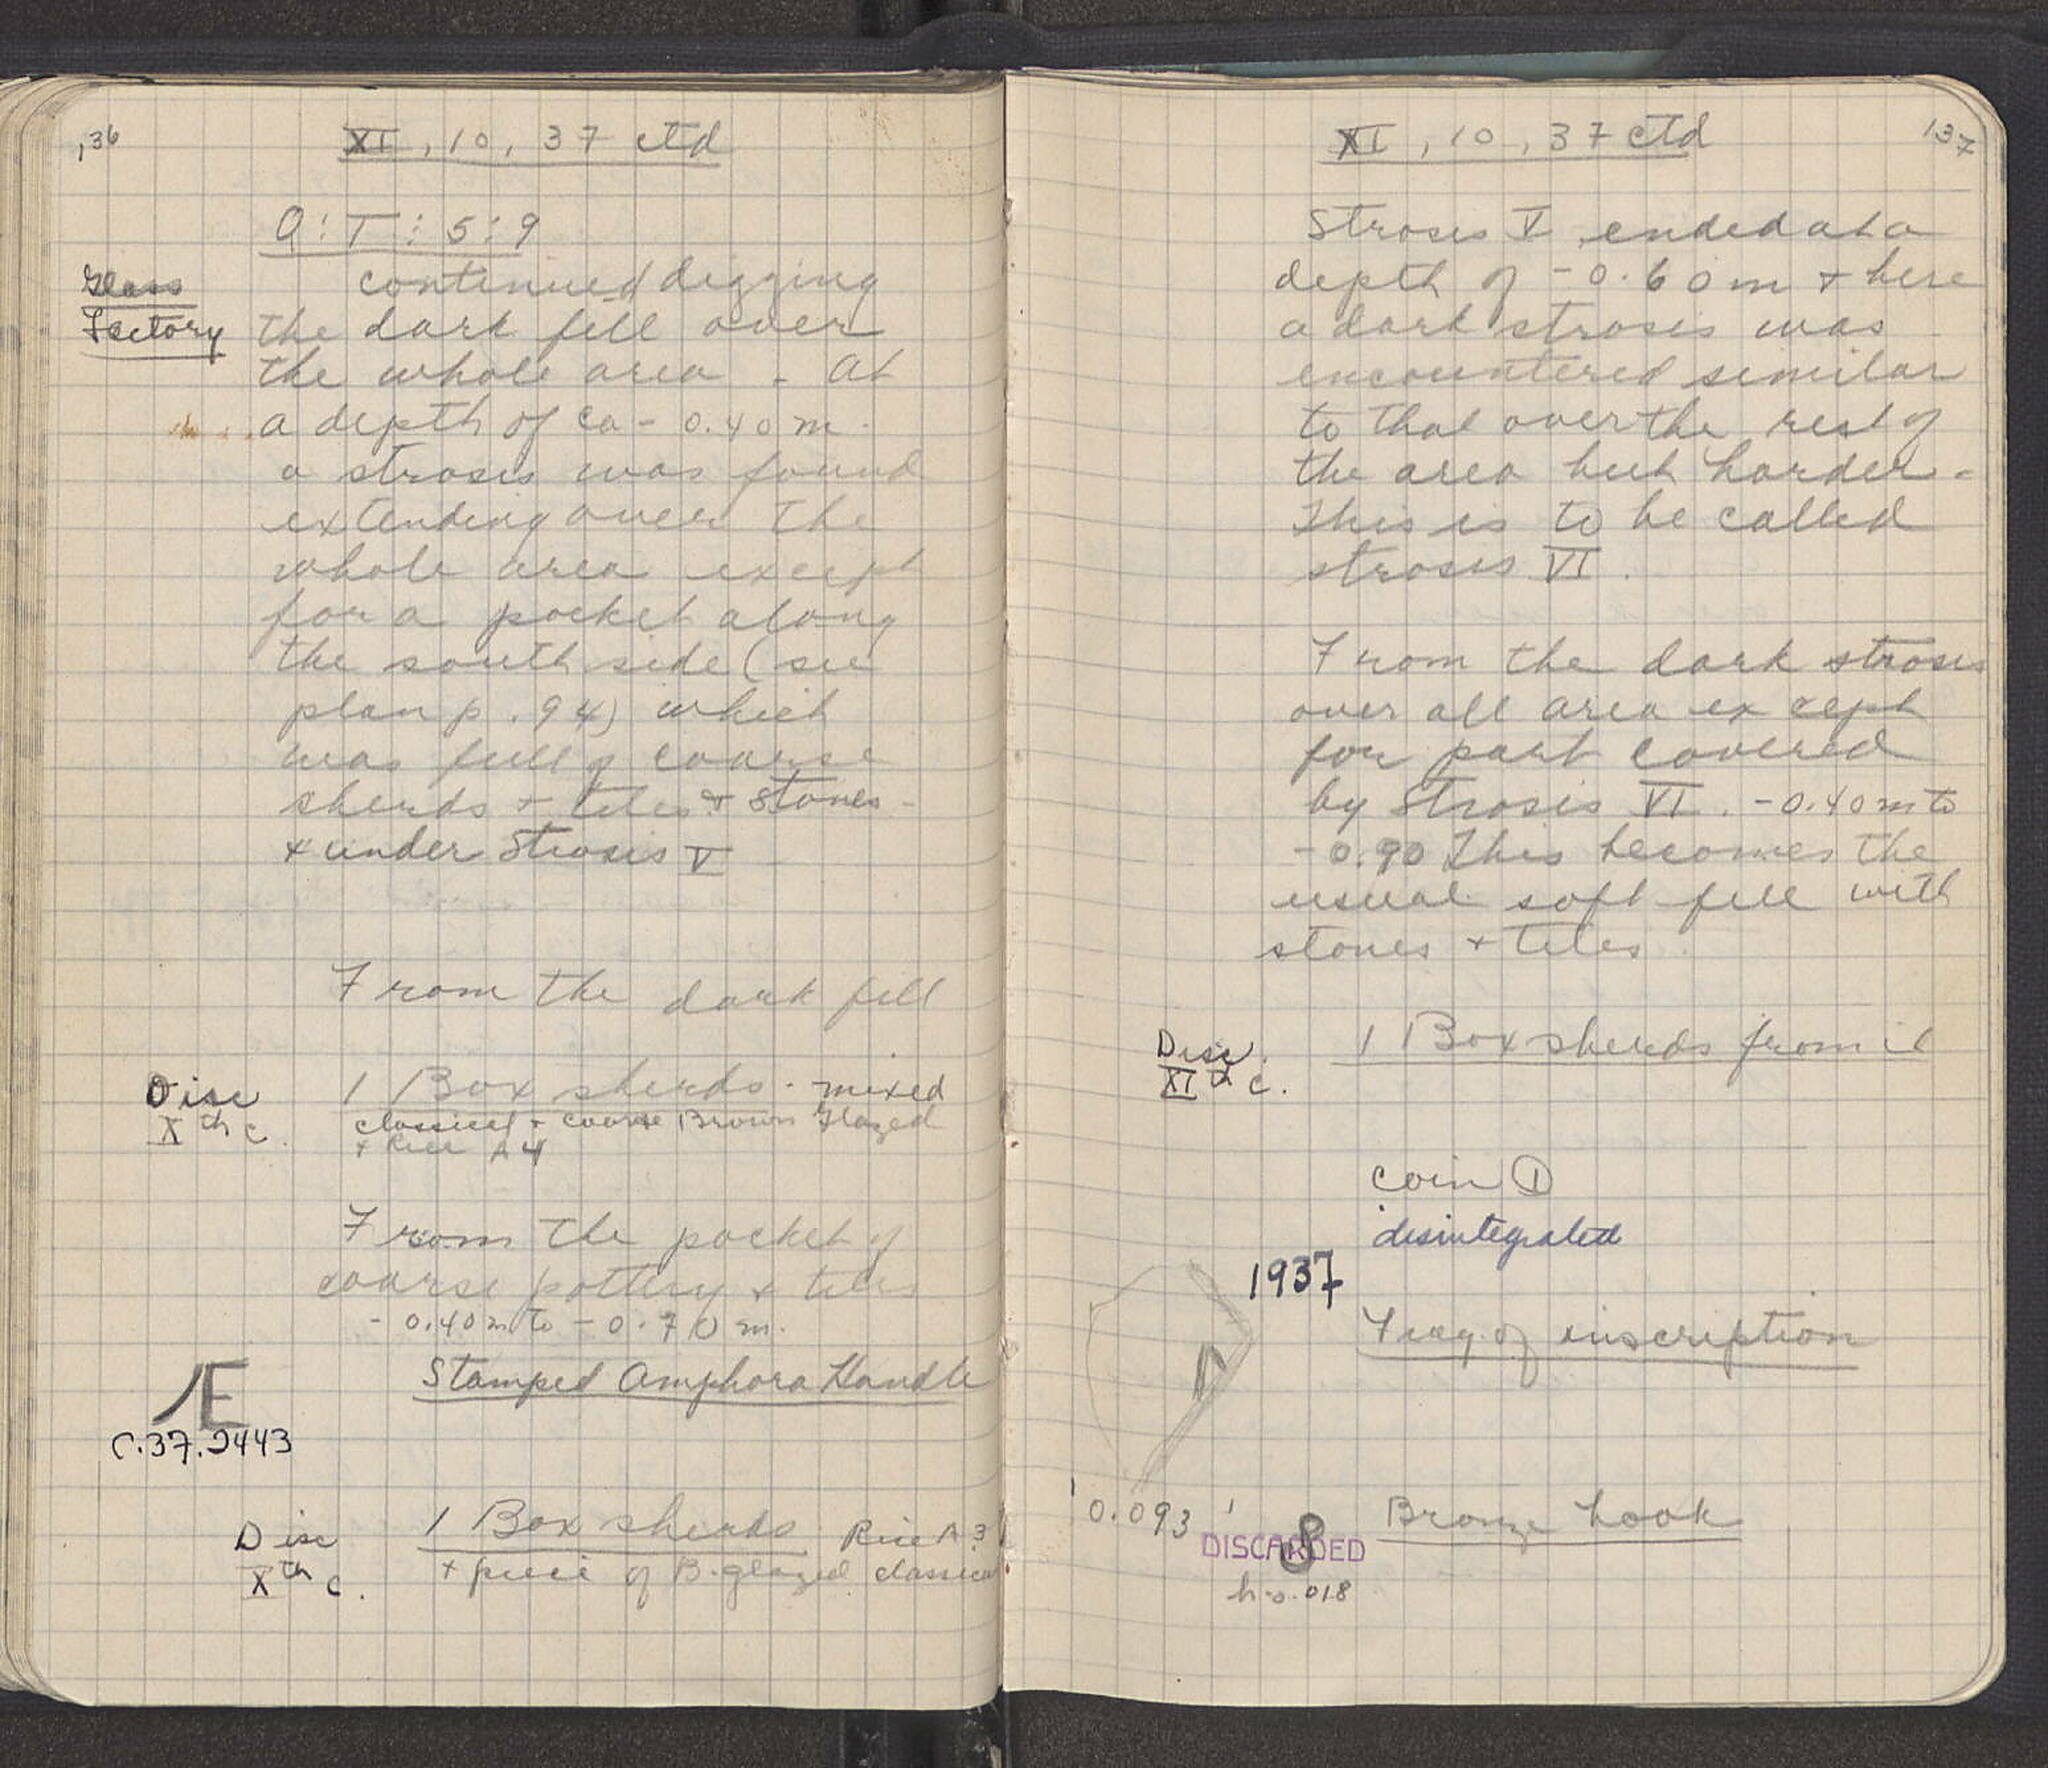 136
XI, 10, 37 ctd
O:T:5:9
Glass
Factory
continued digging
the dark fill over
the whole area - At
a depth of ca - 0.40 m.
a strosis was found
extending over the
whole area except
for a pocket along
the south side (see
plan p. 94) which
was full of coarse
sherds + tiles + stones -
+ under Strosis V
From the dark fill
Disc
Xth c.
1 Box sherds - mixed
classical + coarse Brown Glazed
+ Rice A 4
From the pocket of
coarse pottery + tiles
- 0.40 m to - 0.70 m.
Stamped Amphora Handle
C.37.2443
Disc
Xth c.
1 Box sherds Rice A 3
+ piece of B. glazed classical
137
XI, 10, 37 ctd
Strosis V ended at a
depth of - 0.60 m + here
a dark strosis was
encountered similar
to that over the rest of
the area but harder -
This is to be called
strosis VI.
From the dark strosis
over all area except
for part covered
by Strosis VI. - 0.40 m to
- 0.90 This becomes the
usual soft fill with
stones + tiles.
Disc.
XIth c.
1 Box sherds from it
coin ①
disintegrated
1937
Frag. of inscription
0.093
Bronze hook
8
DISCARDED
h-0.018